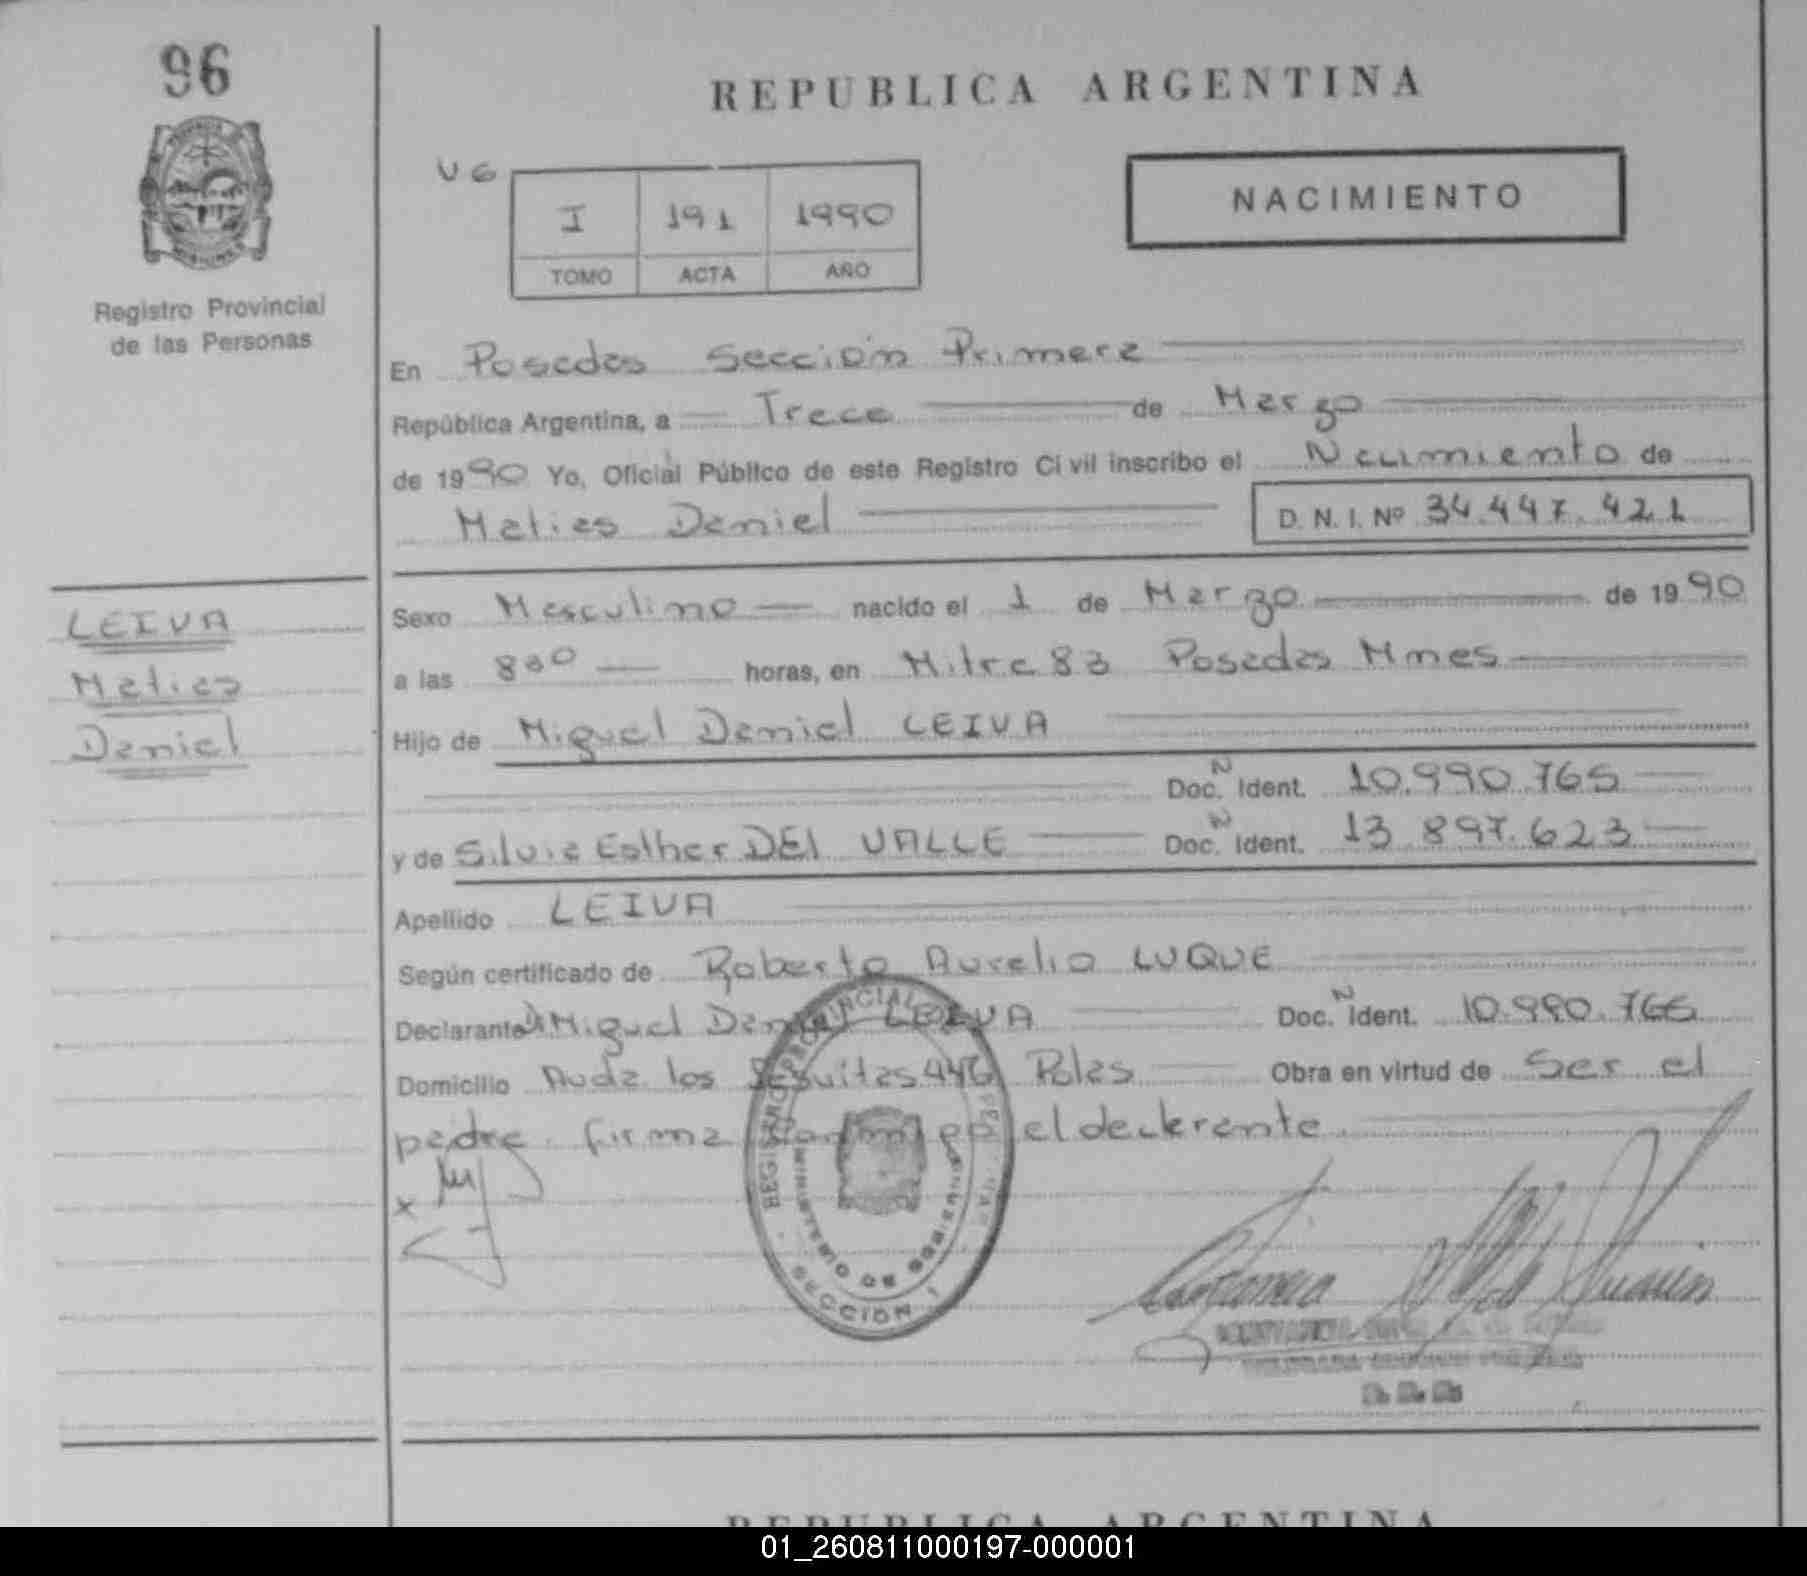 96
REPUBLICA ARGENTINA
NACIMIENTO
I 191 1990
TOMO ACTA AÑO
Registro Provincial
de las Personas
En Posadas Sección Primera
República Argentina, a Trece de Marzo
de 1990 Yo, Oficial Público de este Registro Civil inscribo el Nacimiento de
Matias Daniel D. N. I. Nº 34.447.421
LEIVA
Matias
Daniel
Sexo Masculino nacido el 1 de Marzo de 1990
a las 8:00 horas, en Mitre 83 Posadas Mnes
Hijo de Miguel Daniel LEIVA
Doc. N Ident. 10.990.765
y de Silvia Esther DEl VALLE Doc. N Ident. 13.897.623
Apellido LEIVA
Según certificado de Roberto Aurelio LUQUE
Declarante Miguel Daniel LEIVA Doc. N Ident. 10.990.765
Domicilio Avda los Jesuitas Obra en virtud de ser el
padre. firma el declarante
REGISTRO PROVINCIAL
MINISTERIO DE GOBIERNO
SECCION 1
REPUBLICA ARGENTINA
01_260811000197-000001